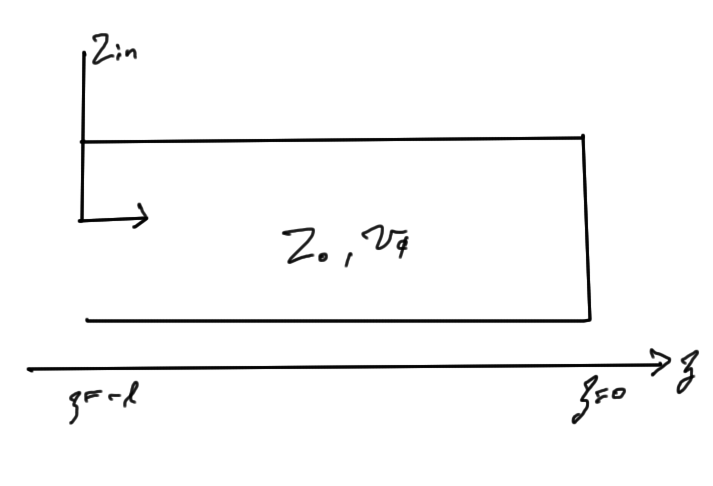 Zin
Z₀, v𝜙
z
z = -l
z = 0